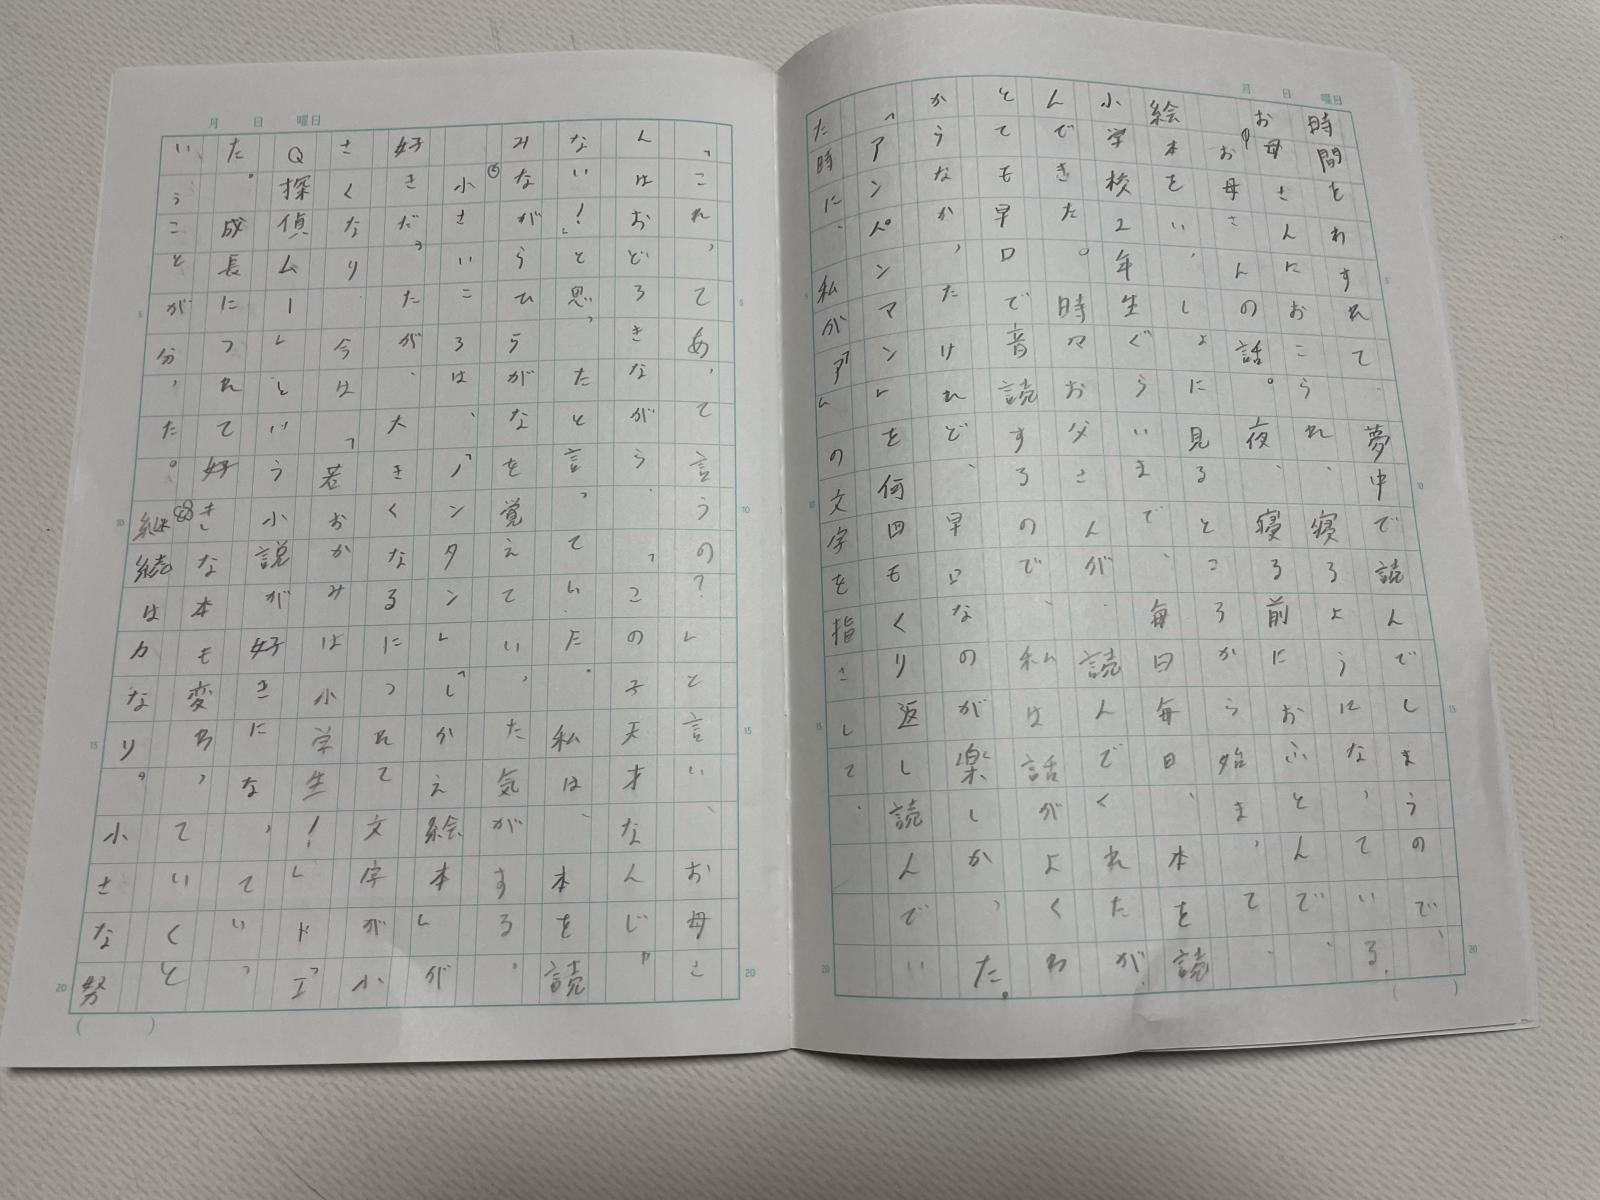 時間をわすれて、夢中で読んでしまうので、
お母さんにおこられ、寝るようになっている。
お母さんの話。夜、寝る前におふとんで、
絵本をいっしょに見るところから始まって、
小学校2年生ぐらいまで、毎日毎日、本を読
んできた。時々お父さんが、読んでくれたが、
とても早口で音読するので、私は話がよくわ
からなかったけれど、早口なのが楽しかった。
「アンパンマン」を何回もくり返し読んでい
た時に、私が「ア」の文字を指さして、
「これってあって言うの?」と言い、お母さ
んはおどろきながら、「この子天才なんじゃ
ない!」と思ったと言っていた。私は、本を読
みながらひらがなを覚えていった気がする。
⑥小さいころは、「ノンタン」「しかえ絵本」が
好きだったが、大きくなるにつれて文字が小
さくなり、今は「若おかみは小学生!」や「I
Q探偵ムー」という小説が好きになっていっ
た。成長につれて好きな本も変わっていくと
いうことが分った。⑧継続は力なり。小さな努